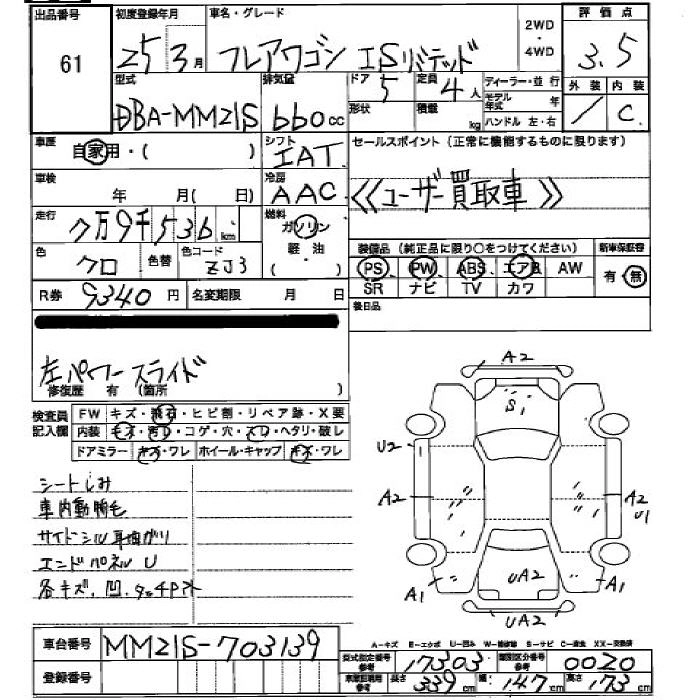 出品番号 初度登録年月 車名・グレード 2WD・4WD 評価点
61 25 3月 フレアワゴン ISリミテッド 3.5
型式 排気量 ドア 5 定員 4人 ディーラー・並行 外装 内装
DBA-MM21S 660cc 形状 積載 kg モデル年式 年 ハンドル 左・右 / C.
車歴 自家用・( ) シフト IAT セールスポイント (正常に機能するものに限ります)
車検 年 月( 日) 冷房 AAC 《ユーザー買取車》
走行 7万9千536km 燃料 ガソリン
色 クロ 色替 色コード ZJ3 軽・油 ・( ) 装備品 (純正品に限り○をつけてください) 新車保証書
PS PW ABS エアB AW 有・無
R券 9340円 名変期限 月 日 SR ナビ TV カワ
後日品
左パワースライド
修復歴 有 (箇所 )
検査員記入欄 FW キズ・飛石・ヒビ割・リペア跡・X要
内装 キズ・汚れ・コゲ・穴・スレ・ヘタリ・破レ
ドアミラー キズ・ワレ ホイール・キャップ キズ・ワレ
シートしみ
車内動物毛
サイドシル耳曲がり
エンドパネル U
各キズ.凹.タッチP汁
A2
S1
U2
A2 A2 U1
A1 UA2 A1
UA2
車台番号 MM21S-703139
登録番号
A-キズ E-エクボ U-凹み W-補修跡 S-サビ C-腐食 XX-交換済
型式指定番号参考 17303 類別区分番号参考 0020
車両証明用参考 長さ 339cm 幅 147cm 高さ 173cm